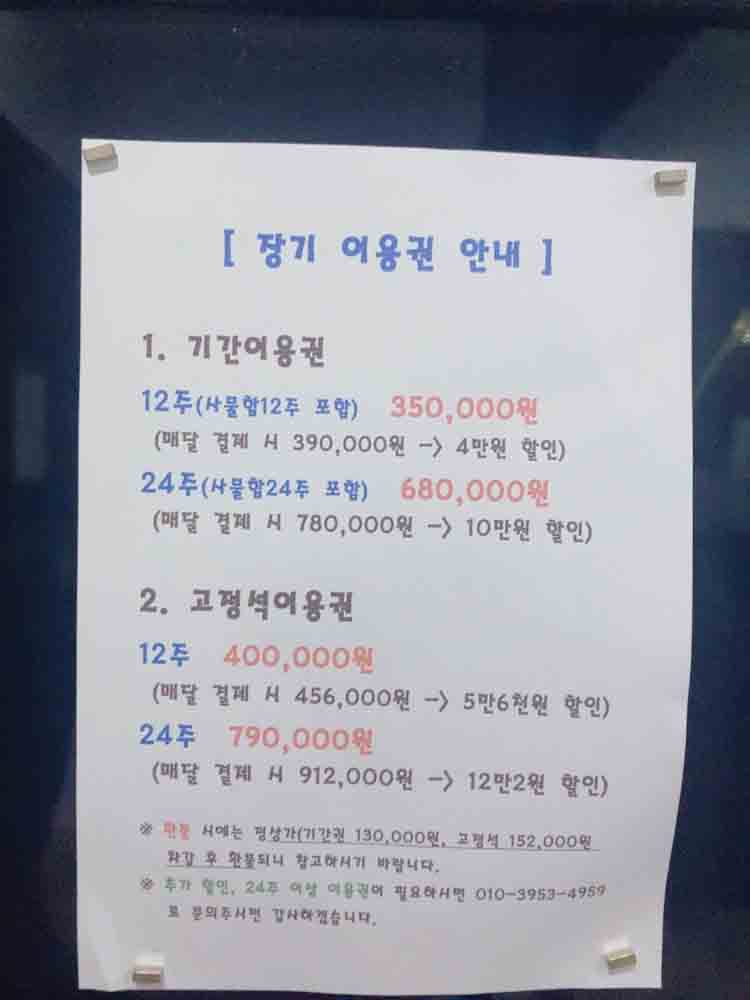 [ 장기 이용권 안내 ]
1. 기간이용권
12주(사물함12주 포함) 350,000원
(매달 결제 시 390,000원 -> 4만원 할인)
24주(사물함24주 포함) 680,000원
(매달 결제 시 780,000원 -> 10만원 할인)
2. 고정석이용권
12주 400,000원
(매달 결제 시 456,000원 -> 5만6천원 할인)
24주 790,000원
(매달 결제 시 912,000원 -> 12만2원 할인)
※ 환불 시에는 정상가(기간권 130,000원, 고정석 152,000원
차감 후 환불되니 참고하시기 바랍니다.
※ 추가 할인, 24주 이상 이용권이 필요하시면 010-3953-4959
로 문의주시면 감사하겠습니다.